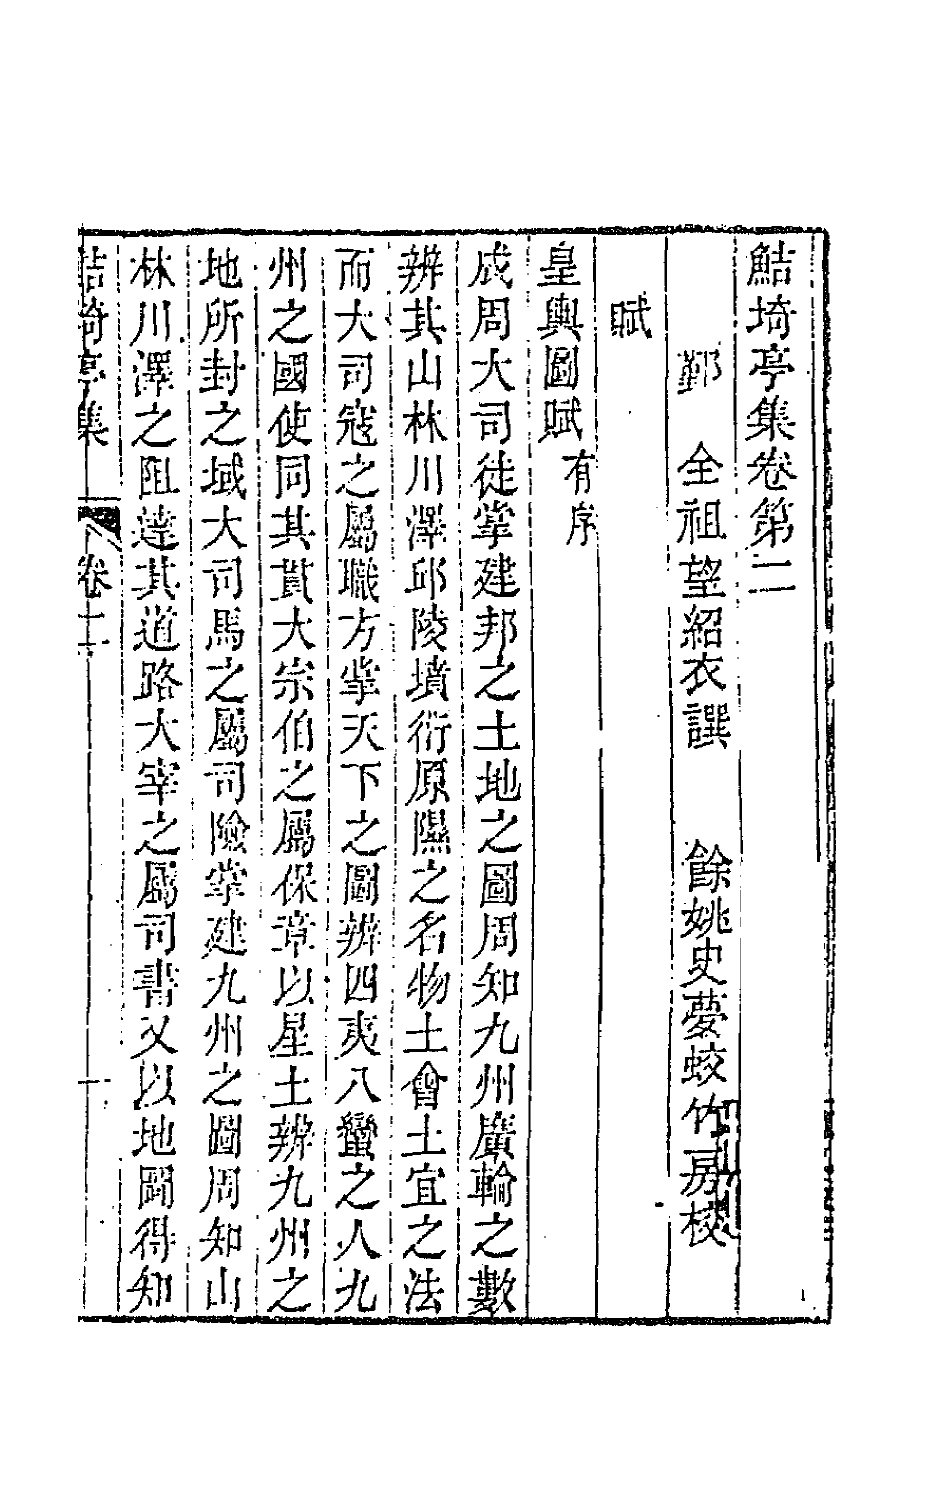 鮚埼亭集卷第二
鄞　全祖望紹衣譔　餘姚史夢蛟竹房校
賦
皇輿圖賦有序
成周大司徒掌建邦之土地之圖周知九州廣輪之數
辨其山林川澤邱陵墳衍原隰之名物土會土宜之法
而大司寇之屬職方掌天下之圖辨四夷八蠻之人九
州之國使同其貫大宗伯之屬保章以星土辨九州之
地所封之域大司馬之屬司險掌建九州之圖周知山
林川澤之阻達其道路大宰之屬司書又以地圖得知
鮚埼亭集　卷二
一